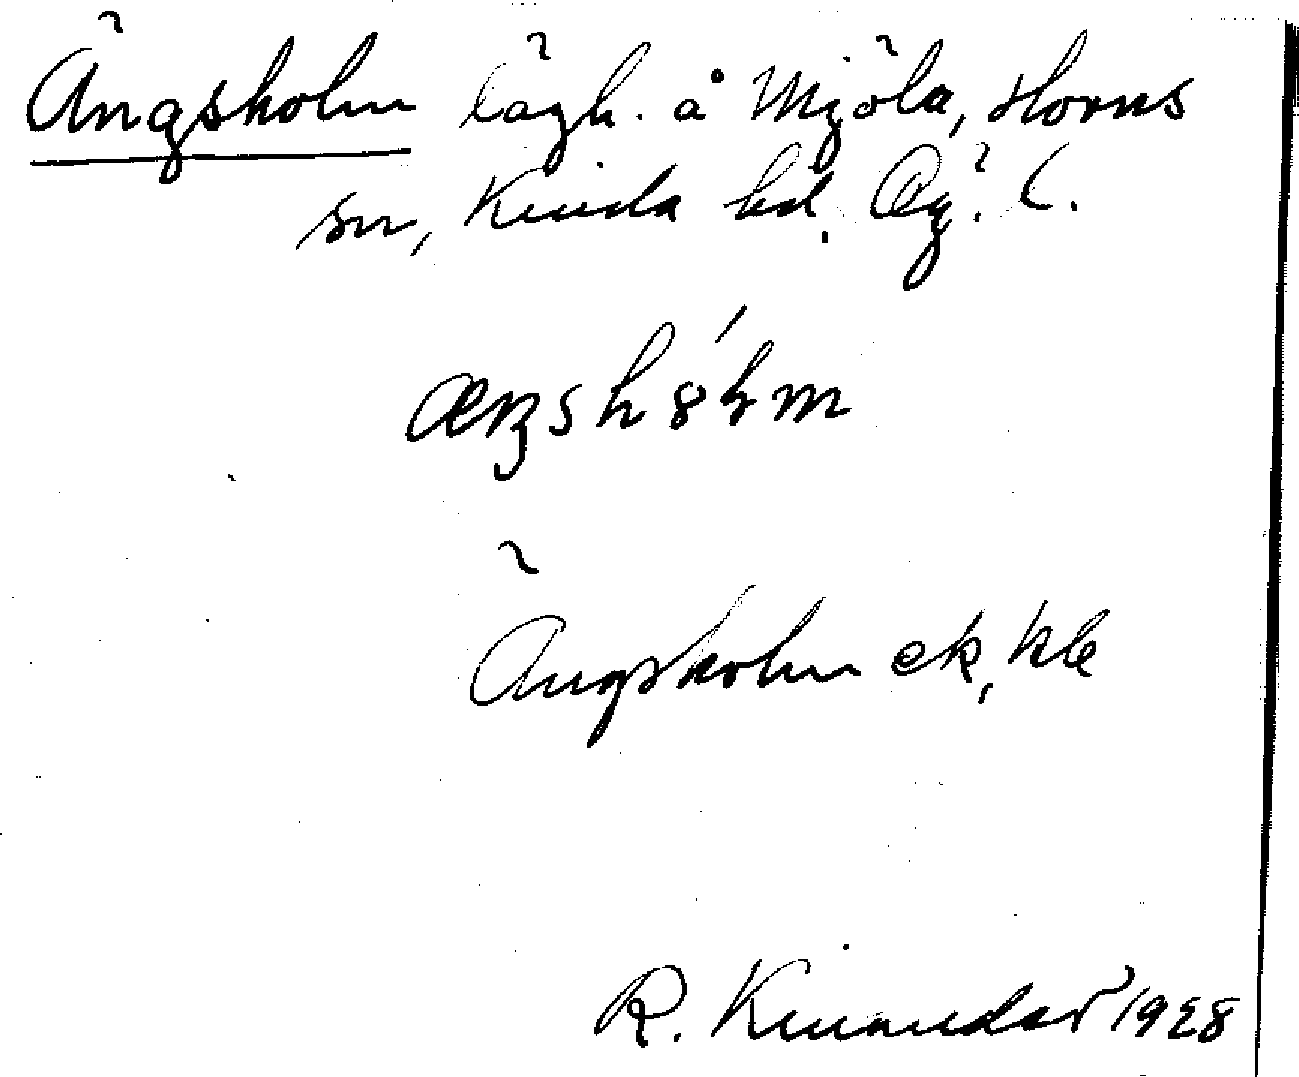 Ängsholm lägh. å Mjöla, Horns
sn, Kinda hd. Ög. l.
Ängsholm ek, kb
R. Kinander 1928